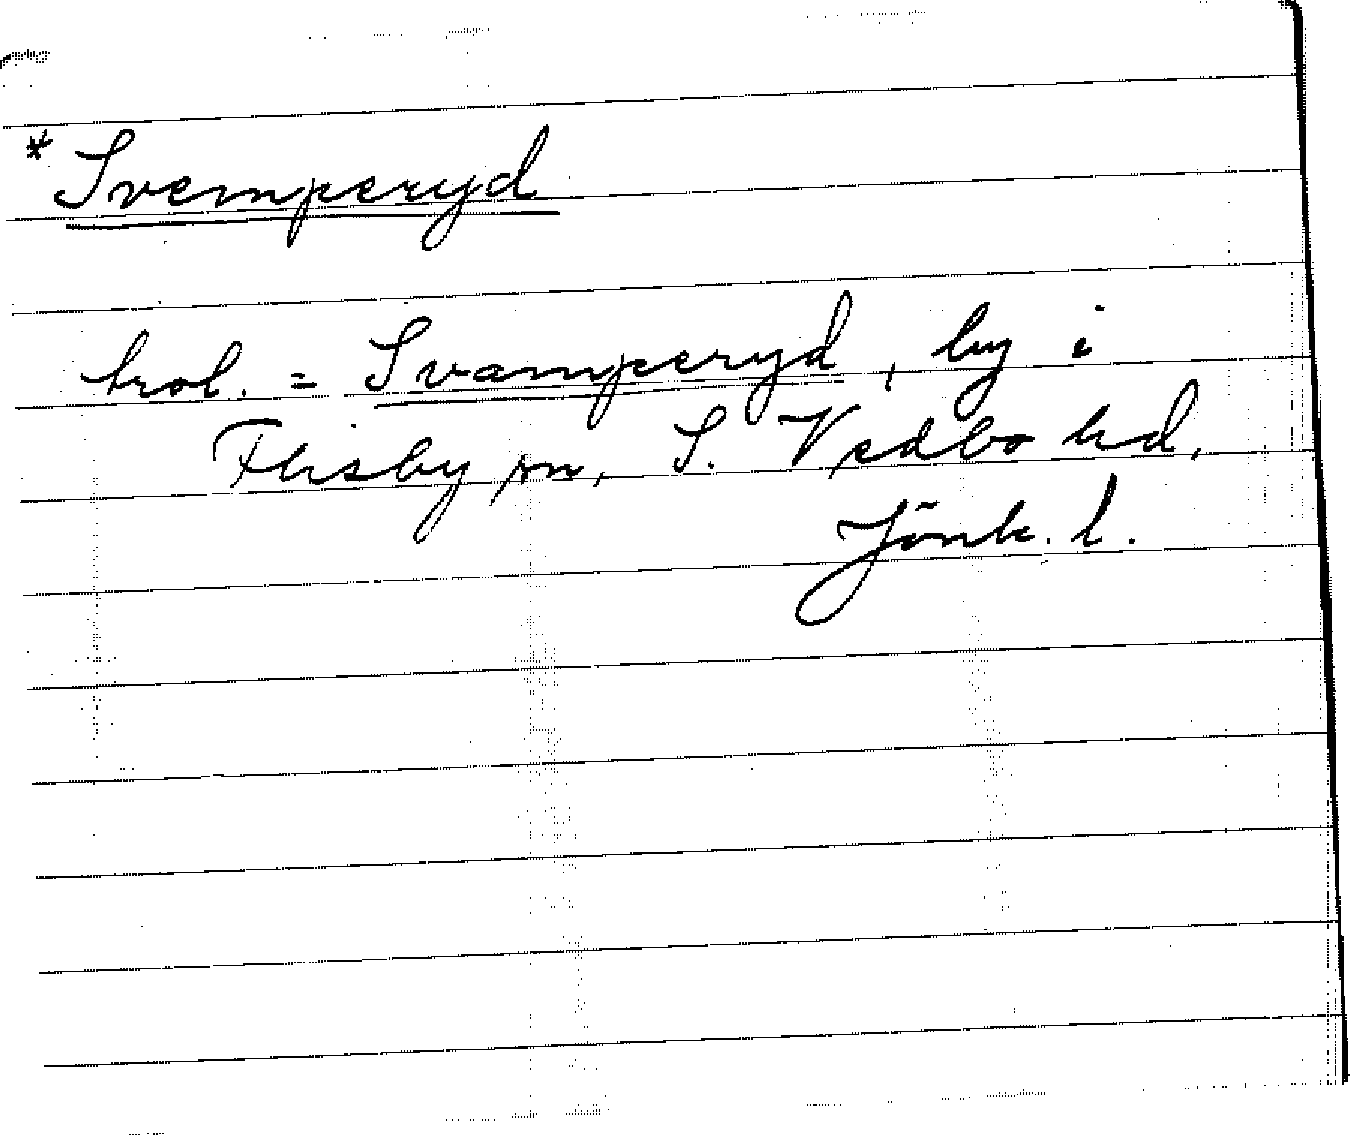 * Svemperyd
trol. = Svamperyd, by i
Flisby sn, S. Vedbo hd,
Jönk. l.